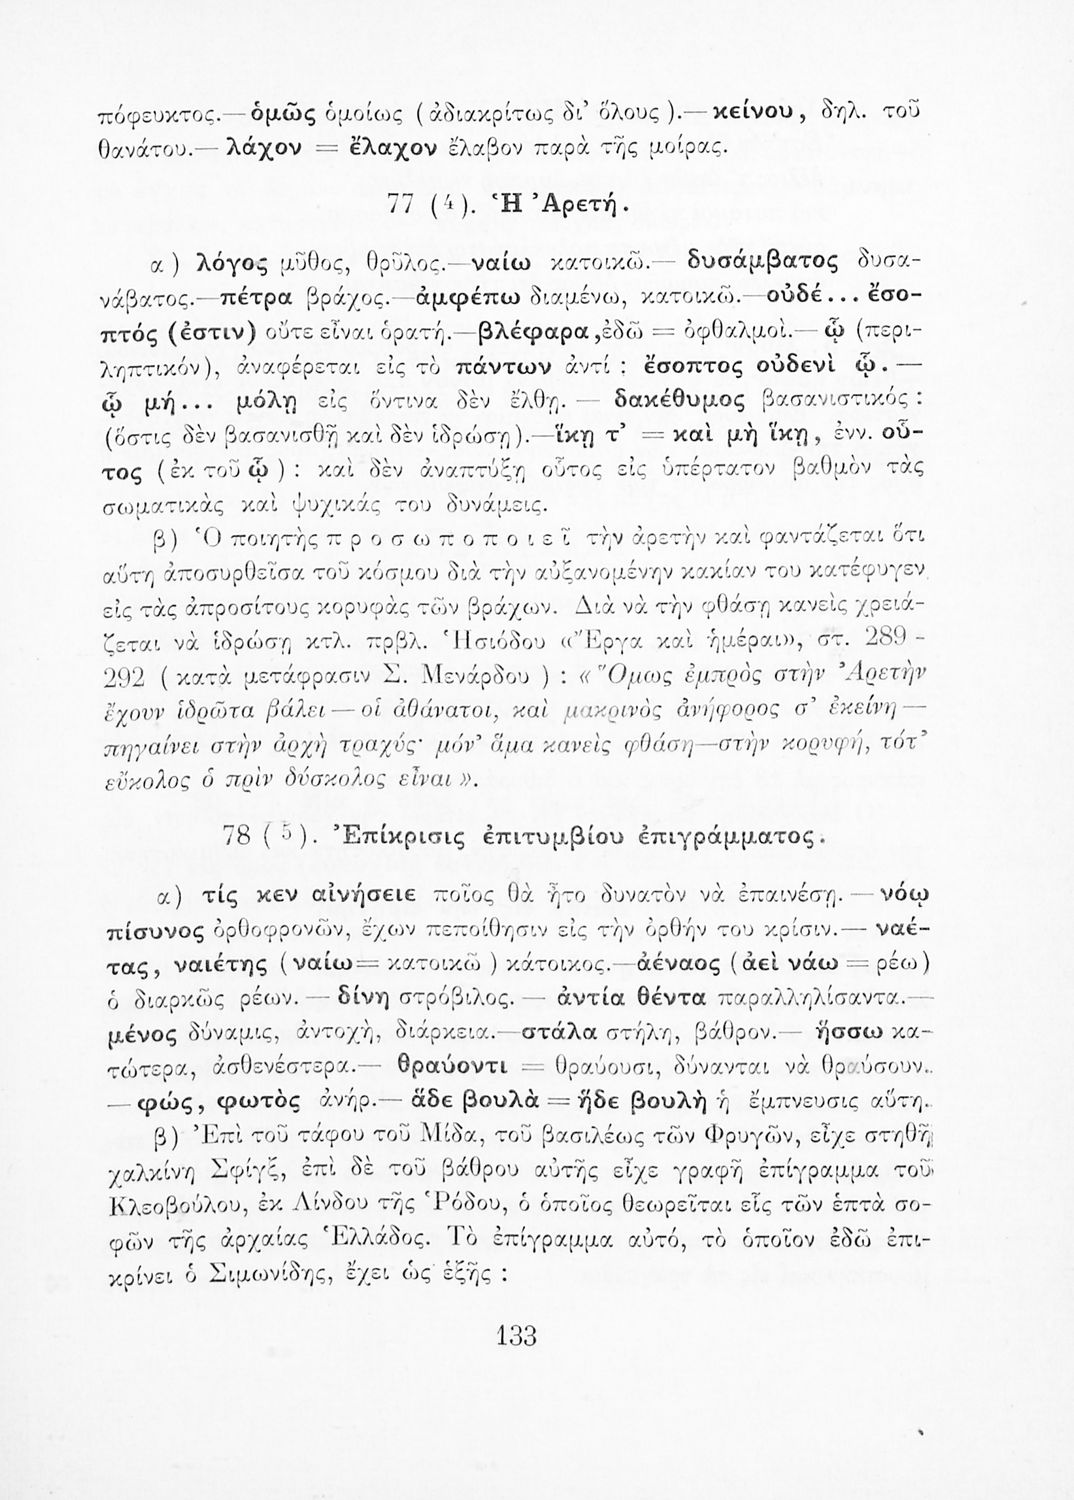 πόφευκτος.— ὁμῶς ὁμοίως ( ἀδιακρίτως δι’ ὅλους ).— κείνου, δηλ. τοῦ
θανάτου.— λάχον = ἔλαχον ἔλαβον παρὰ τῆς μοίρας.
77 (4). Ἡ Ἀρετή.
α ) λόγος μῦθος, θρῦλος.—ναίω κατοικῶ.— δυσάμβατος δυσα-
νάβατος.—πέτρα βράχος.—ἀμφέπω διαμένω, κατοικῶ.—οὐδέ... ἔσο-
πτός (ἐστιν) οὔτε εἶναι ὁρατή.—βλέφαρα,ἐδῶ = ὀφθαλμοὶ.— ᾧ (περι-
ληπτικόν), ἀναφέρεται εἰς τὸ πάντων ἀντί : ἔσοπτος οὐδενὶ ᾧ.—
ᾧ μή... μόλῃ εἰς ὅντινα δὲν ἔλθῃ. — δακέθυμος βασανιστικός :
(ὅστις δὲν βασανισθῇ καὶ δὲν ἱδρώσῃ).—ἵκῃ τ’ = καὶ μὴ ἵκῃ, ἐνν. οὗ-
τος (ἐκ τοῦ ᾧ ) : καὶ δὲν ἀναπτύξῃ οὗτος εἰς ὑπέρτατον βαθμὸν τὰς
σωματικὰς καὶ ψυχικάς του δυνάμεις.
β ) Ὁ ποιητὴς π ρ ο σ ω π ο π ο ι ε ῖ τὴν ἀρετὴν καὶ φαντάζεται ὅτι
αὕτη ἀποσυρθεῖσα τοῦ κόσμου διὰ τὴν αὐξανομένην κακίαν του κατέφυγεν
εἰς τὰς ἀπροσίτους κορυφὰς τῶν βράχων. Διὰ νὰ τὴν φθάσῃ κανεὶς χρειά-
ζεται νὰ ἱδρώσῃ κτλ. πρβλ. Ἡσιόδου «Ἔργα καὶ ἡμέραι», στ. 289 -
292 ( κατὰ μετάφρασιν Σ. Μενάρδου ) : « Ὅμως ἐμπρὸς στὴν Ἀρετὴν
ἔχουν ἱδρῶτα βάλει — οἱ ἀθάνατοι, καὶ μακρινὸς ἀνήφορος σ’ ἐκείνη —
πηγαίνει στὴν ἀρχὴ τραχύς· μόν’ ἅμα κανεὶς φθάσῃ—στὴν κορυφή, τότ’
εὔκολος ὁ πρὶν δύσκολος εἶναι ».
78 ( 5 ). Ἐπίκρισις ἐπιτυμβίου ἐπιγράμματος.
α) τίς κεν αἰνήσειε ποῖος θὰ ἦτο δυνατὸν νὰ ἐπαινέσῃ. — νόῳ
πίσυνος ὀρθοφρονῶν, ἔχων πεποίθησιν εἰς τὴν ὀρθήν του κρίσιν.— ναέ-
τας, ναιέτης ( ναίω= κατοικῶ ) κάτοικος.—ἀέναος ( ἀεὶ νάω = ρέω)
ὁ διαρκῶς ρέων. — δίνη στρόβιλος. — ἀντία θέντα παραλληλίσαντα.—
μένος δύναμις, ἀντοχή, διάρκεια.—στάλα στήλη, βάθρον.— ἥσσω κα-
τώτερα, ἀσθενέστερα.— θραύοντι = θραύουσι, δύνανται νὰ θραύσουν.
— φώς, φωτὸς ἀνήρ.— ἅδε βουλὰ = ἥδε βουλὴ ἡ ἔμπνευσις αὕτη.
β ) Ἐπὶ τοῦ τάφου τοῦ Μίδα, τοῦ βασιλέως τῶν Φρυγῶν, εἶχε στηθῆ
χαλκίνη Σφίγξ, ἐπὶ δὲ τοῦ βάθρου αὐτῆς εἶχε γραφῆ ἐπίγραμμα τοῦ
Κλεοβούλου, ἐκ Λίνδου τῆς Ῥόδου, ὁ ὁποῖος θεωρεῖται εἷς τῶν ἑπτὰ σο-
φῶν τῆς ἀρχαίας Ἑλλάδος. Τὸ ἐπίγραμμα αὐτό, τὸ ὁποῖον ἐδῶ ἐπι-
κρίνει ὁ Σιμωνίδης, ἔχει ὡς ἑξῆς :
133